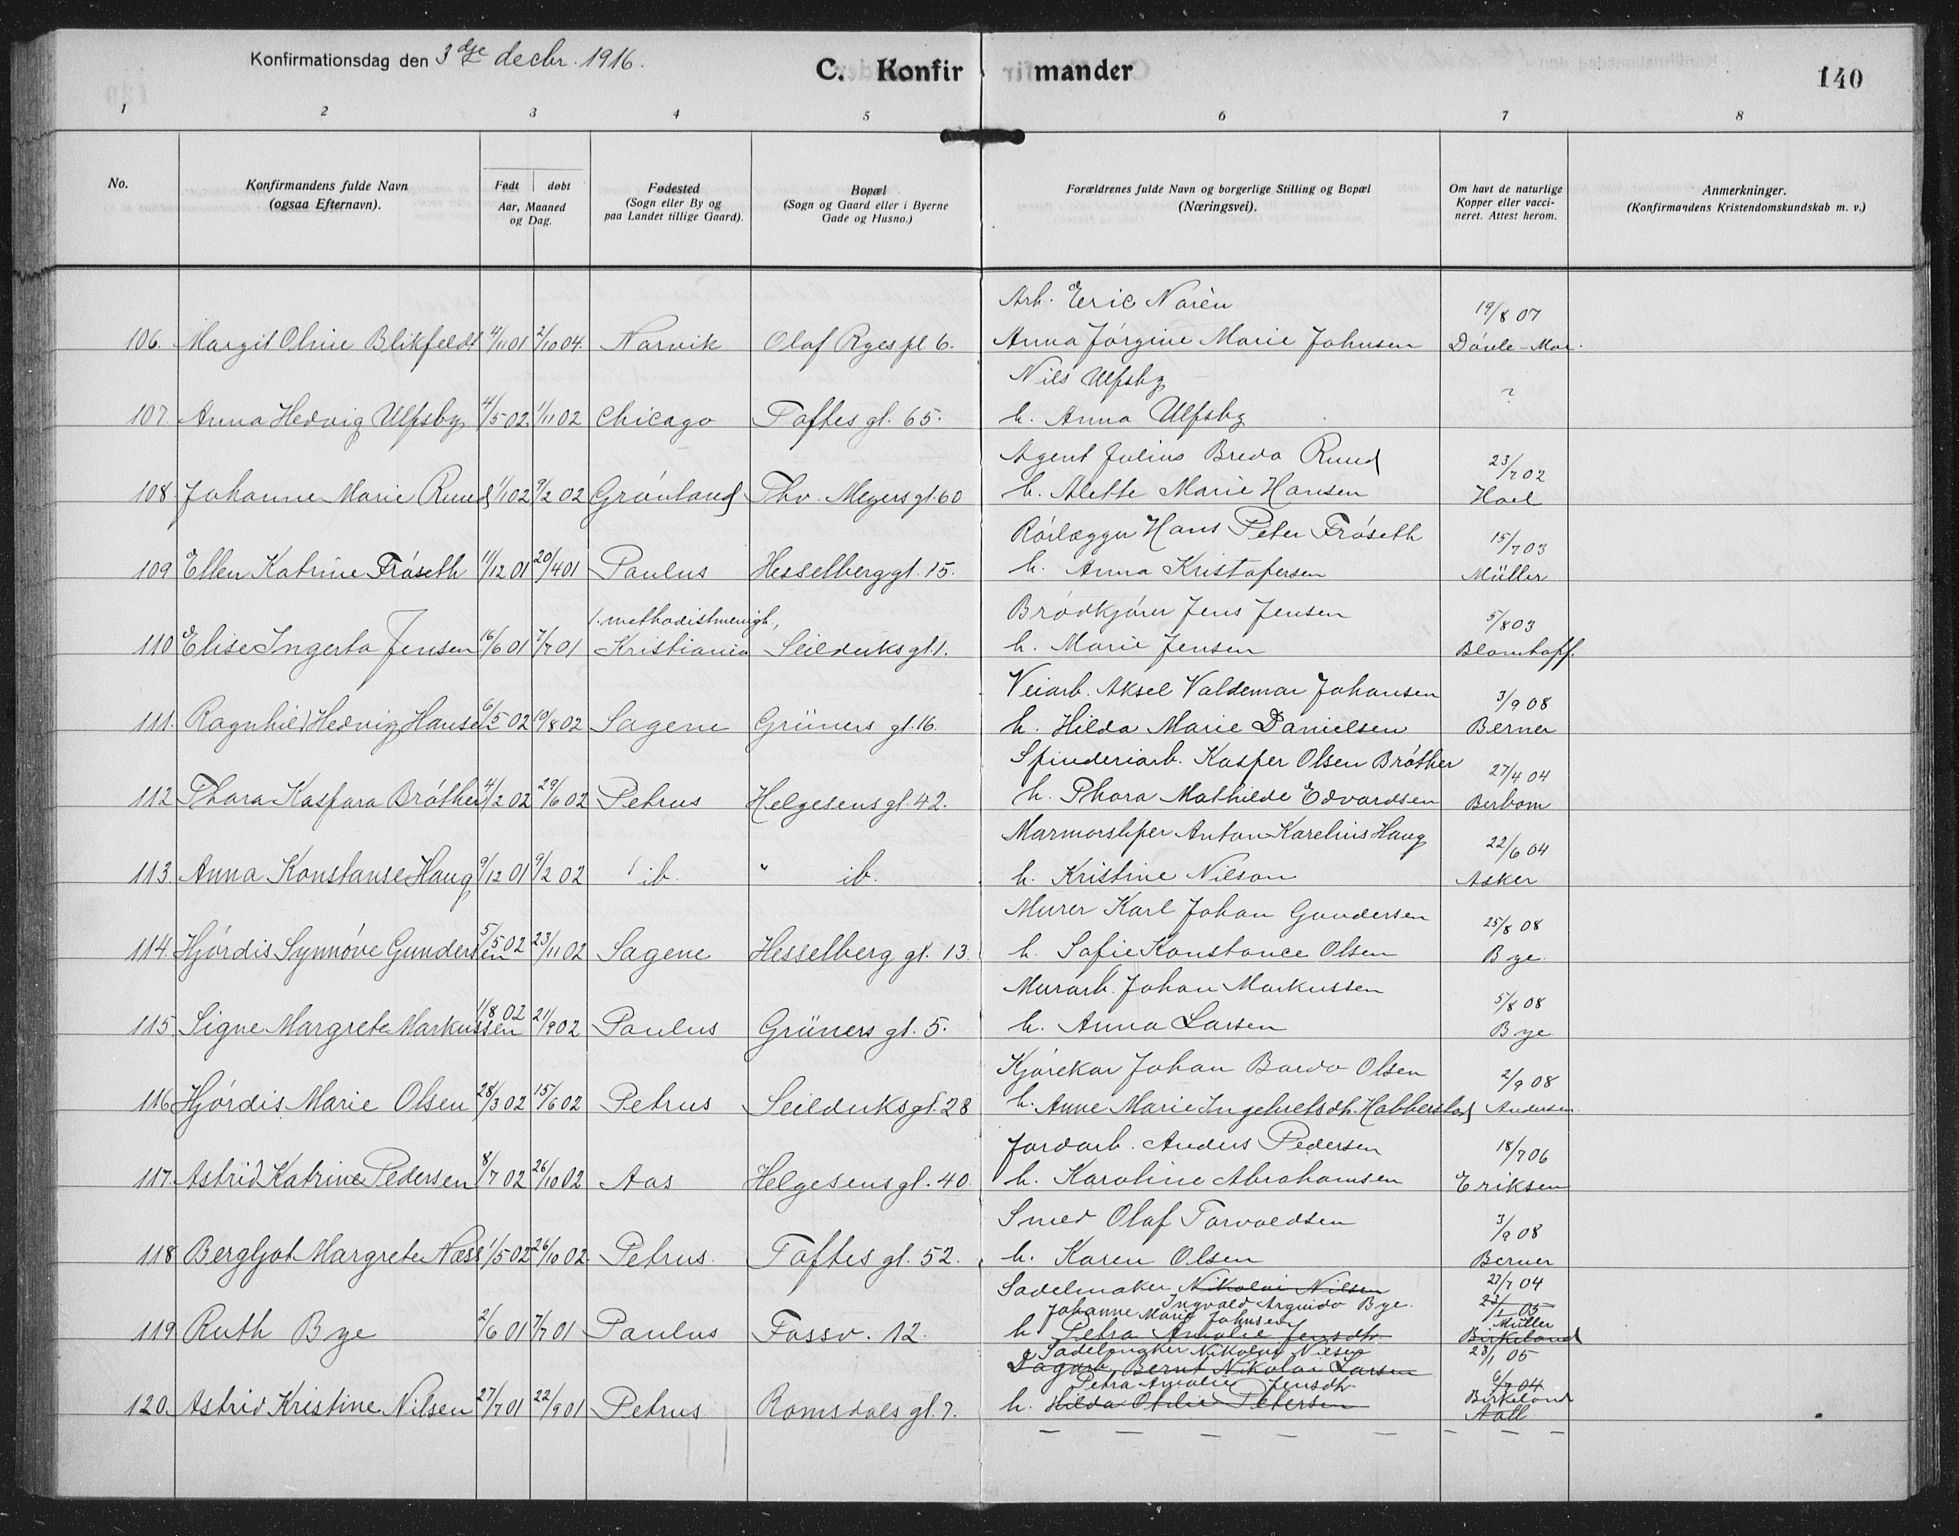 Konfirmationsdag den 3dje decbr. 1916.
C. Konfirmander
140
1 2 3 4 5 6 7 8
No.
Konfirmandens fulde Navn (ogsaa Efternavn).
Født døbt Aar, Maaned og Dag.
Fødested (Sogn eller By og paa Landet tillige Gaard).
Bopæl (Sogn og Gaard eller i Byerne Gade og Husno.)
Forældrenes fulde Navn og borgerlige Stilling og Bopæl (Næringsvei).
Om havt de naturlige Kopper eller vaccineret. Attest herom.
Anmerkninger. (Konfirmandens Kristendomskundskab m. v.)
Arb. Eric Narèn 19/8 07
106. Margit Oline Blikfeldt 4/11 01 2/10 04. Narvik Olaf Ryes pl. 6. Anna Jørgine Marie Johnsen
Nils Ulfsby ?
107. Anna Hedvig Ulfsby 4/5 02. 1/11 02 Chicago Toftes gl. 65. h. Anna Ulfsby
Agent Julius Breda Ruud 23/7 02
108. Johanne Marie Ruud 1/1 02 9/2 02 Grønland Thv. Meyers gl. 60 h. Alette Marie Hansen Hoel
Rørlægger Hans Peter Frøseth 15/7 03
109 Ellen Katrine Frøseth 11/12 01 20/4 01 Paulus Hesselberg gl. 15. h. Anna Kristofersen Müller
1. methodistmenigh, Brødkjører Jens Jensen 5/8 03
110 Elise Ingerta Jensen 16/6 01 7/7 01 Kristiania Seilduks gl 1. h. Marie Jensen Blomhoff.
Veiarb. Aksel Valdemar Johansen 3/9 08
111. Ragnhild Hedvig Hansen 6/5 02 10/8 02 Sagene Grüners gl. 16. h. Hilda Marie Danielsen Berner
Spinderiarb. Kasper Olsen Brøther 27/4 04
112 Thora Kaspara Brøther 4/2 02 29/6 02 Petrus Helgesens gl. 42. h. Thora Mathilde Edvardsen Berbom
Marmorsliper Anton Karelius Haug 22/6 04
113. Anna Konstanse Haug 9/12 01 9/2 02 ib. " ib. h. Kristine Nilson Asker
Murer Karl Johan Gundersen 25/8 08
114. Hjørdis Synnøve Gundersen 5/5 02 23/11 02 Sagene Hesselberg gl. 13. h. Sofie Konstance Olsen Bye.
Murarb. Johan Markussen 5/8 08
115. Signe Margrete Markussen 1/8 02 21/9 02 Paulus Grüners gl. 5. h. Anna Larsen Bye
Kjørekar Johan Bardo Olsen 2/9 08
116 Hjørdis Marie Olsen 28/3 02 15/6 02 Petrus Seilduks gl. 28 h. Anne Marie Ingebretsdtr. Habberstad Andersen.
Jordarb. Anders Pedersen 18/7 06
117. Astrid Katrine Pedersen 8/7 02 26/10 02 Aas Helgesens gl. 40. h. Karoline Abrahamsen Eriksen
Smed Olaf Torvaldsen 3/9 08
118 Bergljot Margrete Næss 1/5 02 26/10 02. Petrus. Toftes gl. 52. h. Karen Olsen Berner
Sadelmaker Nikolai Nilsen 27/7 04
Ingvald Arguido Bye. 23/1 05
Johanne Marie Johnsen Müller
119 Ruth Bye 2/6 01 7/7 01 Paulus Fossv. 12. h. Petra Amalie Jensdtr. Birkeland
Sadelmaker Nikolai Nilsen 23/1 05
Dagarb. Bernt Nikolai Larsen
Petra Amalie Jensdtr. 6/7 04
120. Astrid Kristine Nilsen 27/7 01 22/9 01 Petrus Romsdals gl. 7. h. Hilda Otilie Petersen Birkeland
Aall